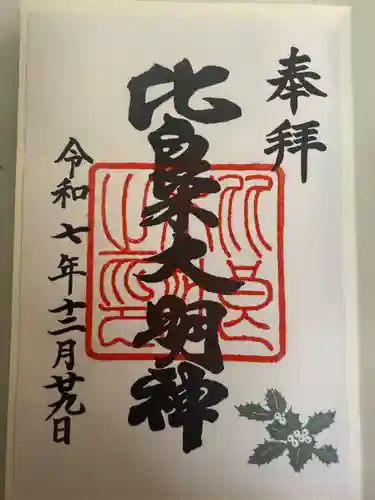 奉拝
比枲大明神
令和七年十二月廿九日